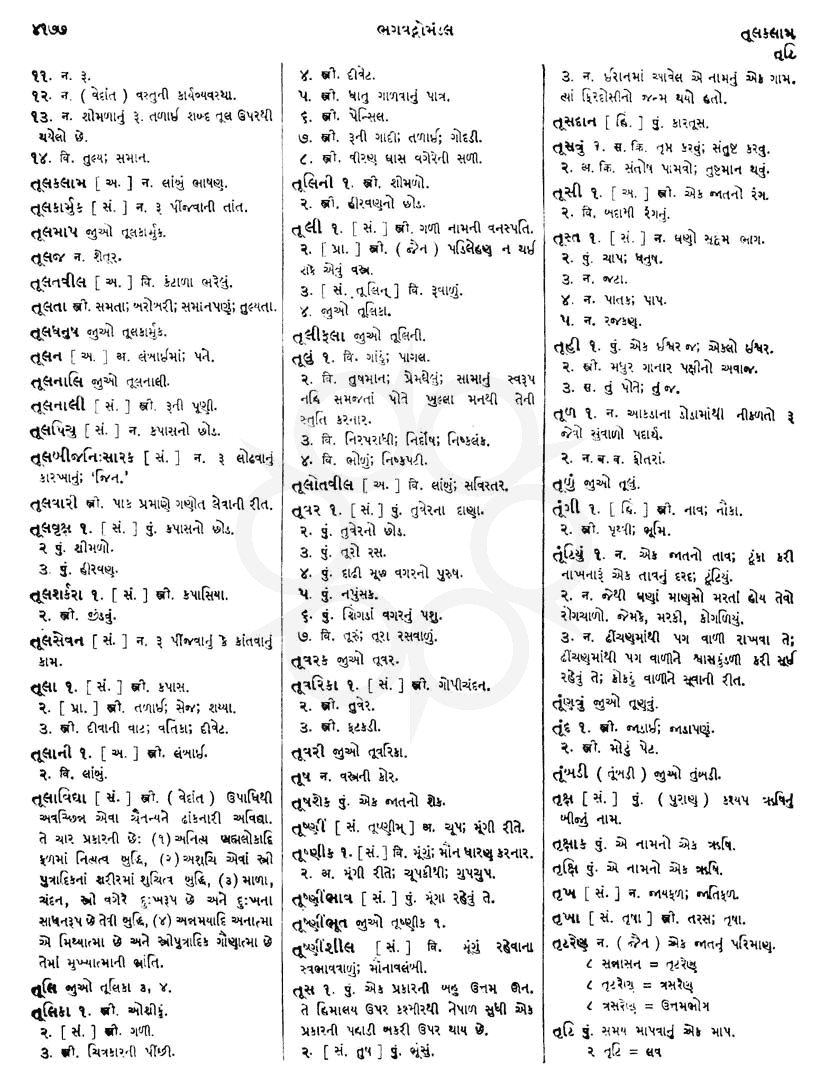 ૪૧૭૭
ભગવદ્ગોમંડલ
તૂલકલામ
તૃટિ
૧૧. ન. રૂ.
૧૨. ન. ( વેદાંત ) વસ્તુની કાર્યવ્યવસ્થા.
૧૩. ન. શીમળાનું રૂ. તળાઈ શબ્દ તૂલ ઉપરથી
થયેલો છે.
૧૪. વિ. તુલ્ય; સમાન.
તૂલકલામ [ અ. ] ન. લાંબું ભાષણ.
તૂલકાર્મુક [ સં. ] ન. રૂ પીંજવાની તાંત.
તૂલમાપ જુઓ તૂલકાર્મુક.
તૂલજ ન. શેતૂર.
તૂલતવીલ [ અ. ] વિ. કંટાળા ભરેલું.
તૂલતા સ્ત્રી. સમતા; બરોબરી; સમાનપણું; તુલ્યતા.
તૂલધનુષ જુઓ તૂલકાર્મુક.
તૂલન [ અ. ] અ. લંબાઈમાં; પને.
તૂલનાલિ જુઓ તૂલનાલી.
તૂલનાલી [ સં. ] સ્ત્રી. રૂની પૂણી.
તૂલપિચુ [ સં. ] ન. કપાસનો છોડ.
તૂલબીજનિઃસારક [ સં. ] ન. રૂ લોઢવાનું
કારખાનું; ‘જિન.’
તૂલવારી સ્ત્રી. પાક પ્રમાણે ગણોત લેવાની રીત.
તૂલવૃક્ષ ૧. [ સં. ] પું. કપાસનો છોડ.
૨ પું. શીમળો.
૩. પું. હીરવણ.
તૂલશર્કરા ૧. [ સં. ] સ્ત્રી. કપાસિયા.
૨. સ્ત્રી. જીંડવું.
તૂલસેવન [ સં. ] ન. રૂ પીંજવાનું કે કાંતવાનું
કામ.
તૂલા ૧. [ સં. ] સ્ત્રી. કપાસ.
૨. [ પ્રા. ] સ્ત્રી. તળાઈ; સેજ; શય્યા.
૩. સ્ત્રી. દીવાની વાટ; વતિકા; દીવેટ.
તૂલાની ૧. [ અ. ] સ્ત્રી. લંબાઈ.
૨. વિ. લાંબું.
તૂલાવિદ્યા [ સં. ] સ્ત્રી. ( વેદાંત ) ઉપાધિથી
અવચ્છિન્ન એવા ચૈતન્યને ઢાંકનારી અવિદ્યા.
તે ચાર પ્રકારની છેઃ (૧) અનિત્ય બ્રહ્મલોકાદિ
ફળમાં નિત્યત્વ બુદ્ધિ, (૨) અશુચિ એવાં સ્ત્રી
પુત્રાદિકનાં શરીરમાં શુચિત્વ બુદ્ધિ, (૩) માળા,
ચંદન, સ્ત્રી વગેરે દુઃખરૂપ છે અને દુઃખના
સાધનરૂપ છે તેવી બુદ્ધિ, (૪) અન્નમયાદિ અનાત્મા
એ મિથ્યાત્મા છે અને સ્ત્રીપુત્રાદિક ગૌણાત્મા છે
તેમાં મુખ્યાત્માની ભ્રાંતિ.
તૂલિ જુઓ તૂલિકા ૩, ૪.
તૂલિકા ૧. સ્ત્રી. ઓશીકું.
૨. [ સં. ] સ્ત્રી. ગળી.
૩. સ્ત્રી. ચિત્રકારની પીંછી.
૪. સ્ત્રી. દીવેટ.
૫. સ્ત્રી. ધાતુ ગાળવાનું પાત્ર.
૬. સ્ત્રી. પેન્સિલ.
૭. સ્ત્રી. રૂની ગાદી; તળાઈ; ગોદડી.
૮. સ્ત્રી. વીરણ ઘાસ વગેરેની સળી.
તૂલિની ૧. સ્ત્રી. શીમળો.
૨. સ્ત્રી. હીરવણનો છોડ.
તૂલી ૧. [ સં. ] સ્ત્રી. ગળી નામની વનસ્પતિ.
૨. [ પ્રા. ] સ્ત્રી. ( જૈન ) પડિલેહણ ન થઈ
શકે એવું વસ્ત્ર.
૩. [ સં. તૂલિન્ ] વિ. રૂવાળું.
૪. જુઓ તૂલિકા.
તૂલીફલા જુઓ તૂલિની.
તૂલું ૧. વિ. ગાંડું; પાગલ.
૨. વિ. તુષમાન; પ્રેમઘેલું; સામાનું સ્વરૂપ
નહિ સમજતાં પોતે ખુલ્લા મનથી તેની
સ્તુતિ કરનાર.
૩. વિ. નિરપરાધી; નિર્દોષ; નિષ્કલંક.
૪. વિ. ભોળું; નિષ્કપટી.
તૂલોતવીલ [ અ. ] વિ. લાંબું; સવિસ્તર.
તૂવર ૧. [ સં. ] પું. તુવેરના દાણા.
૨. પું. તુવેરનો છોડ.
૩. પું. તૂરો રસ.
૪. પું. દાઢી મૂછ વગરનો પુરુષ.
૫. પું. નપુંસક.
૬. પું. શિંગડાં વગરનું પશુ.
૭. વિ. તૂરું; તૂરા રસવાળું.
તૂવરક જુઓ તૂવર.
તૂવરિકા ૧. [ સં. ] સ્ત્રી. ગોપીચંદન.
૨. સ્ત્રી. તુવેર.
૩. સ્ત્રી. ફટકડી.
તૂવરી જુઓ તૂવરિકા.
તૂષ ન. વસ્ત્રની કોર.
તૂષશેક પું. એક જાતનો શેક.
તૂષ્ણીં [ સં. તૂષ્ણીમ્ ] અ. ચૂપ; મૂંગી રીતે.
તૂષ્ણીક ૧. [સં.] વિ. મૂંગું; મૌન ધારણ કરનાર.
૨. અ. મૂંગી રીતે; ચૂપકીથી; ગુપચુપ.
તૂષ્ણીંભાવ [ સં. ] પું. મૂંગા રહેવું તે.
તૂષ્ણીંભૂત જુઓ તૂષ્ણીક ૧.
તૂષ્ણીંશીલ [ સં. ] વિ. મૂંગું રહેવાના
સ્વભાવવાળું; મૌનાવલંબી.
તૂસ ૧. પું. એક પ્રકારની બહુ ઉત્તમ ઊન.
તે હિમાલય ઉપર કશ્મીરથી નેપાળ સુધી એક
પ્રકારની પહાડી બકરી ઉપર થાય છે.
૨. [ સં. તુષ ] પું. ભૂંસું.
૩. ન. ઈરાનમાં આવેલ એ નામનું એક ગામ.
ત્યાં ફિરદોસીનો જન્મ થયો હતો.
તૂસદાન [ હિં. ] પું. કારતૂસ.
તૂસવું ૧. સ. ક્રિ. તૃપ્ત કરવું; સંતુષ્ટ કરવુ.
૨. અ. ક્રિ. સંતોષ પામવો; તુષ્ટમાન થવું.
તૂસી ૧. [ અ. ] સ્ત્રી. એક જાતનો રંગ.
૨. વિ. બદામી રંગનું.
તૂસ્ત ૧. [ સં. ] ન. ઘણો સૂક્ષ્મ ભાગ.
૨. પું. ચાપ; ધનુષ.
૩. ન. જટા.
૪. ન. પાતક; પાપ.
૫. ન. રજકણ.
તૂહી ૧. પું. એક ઈશ્વર જ; એકલો ઈશ્વર.
૨. સ્ત્રી. મધુર ગાનાર પક્ષીનો અવાજ.
૩. સ. તું પોતે; તું જ.
તૂળ ૧. ન. આકડાના ડોડામાંથી નીકળતો રૂ
જેવો સુંવાળો પદાર્થ.
૨. ન. બ. વ. ફોતરાં.
તૂળું જુઓ તૂલું.
તૂંગી ૧. [ હિં. ] સ્ત્રી. નાવ; નૌકા.
૨. સ્ત્રી. પૃથ્વી; ભૂમિ.
તૂંટિયું ૧. ન. એક જાતનો તાવ; ટૂંકા કરી
નાખનારૂં એક તાવનું દરદ; ટૂંટિયું.
૨. ન. જેથી ઘણાં માણસો મરતાં હોય તેવો
રોગચાળો. જેમકે, મરકી, કોગળિયું.
૩. ન. ઢીંચણમાંથી પગ વાળી રાખવા તે;
ઢીંચણમાંથી પગ વાળીને શ્વાસકુંડળી કરી સૂઈ
રહેવું તે; કોકડું વાળીને સૂવાની રીત.
તૂંણવું જુઓ તૂણવું.
તૂંદ ૧. સ્ત્રી. જાડાઈ; જાડાપણું.
૨. સ્ત્રી. મોટું પેટ.
તૂંબડી ( તૂંબડી ) જુઓ તુંબડી.
તૃક્ષ [ સં. ] પું. ( પુરાણ ) કશ્યપ ઋષિનું
બીજું નામ.
તૃક્ષાક પું. એ નામનો એક ઋષિ.
તૃક્ષિ પું. એ નામનો એક ઋષિ.
તૃખ [ સં. ] ન. જાયફળ; જાતિફળ.
તૃખા [ સં. તૃષા ] સ્ત્રી. તરસ; તૃષા.
તૃટરેણુ ન. ( જૈન ) એક જાતનું પરિમાણ.
૮ સન્નાસન = તૃટરેણુ
૮ તૃટરેણુ = ત્રસરેણુ
૮ ત્રસરેણુ = ઉત્તમભોગ
તૃટિ પું. સમય માપવાનું એક માપ.
૨ તૃટિ = લવ